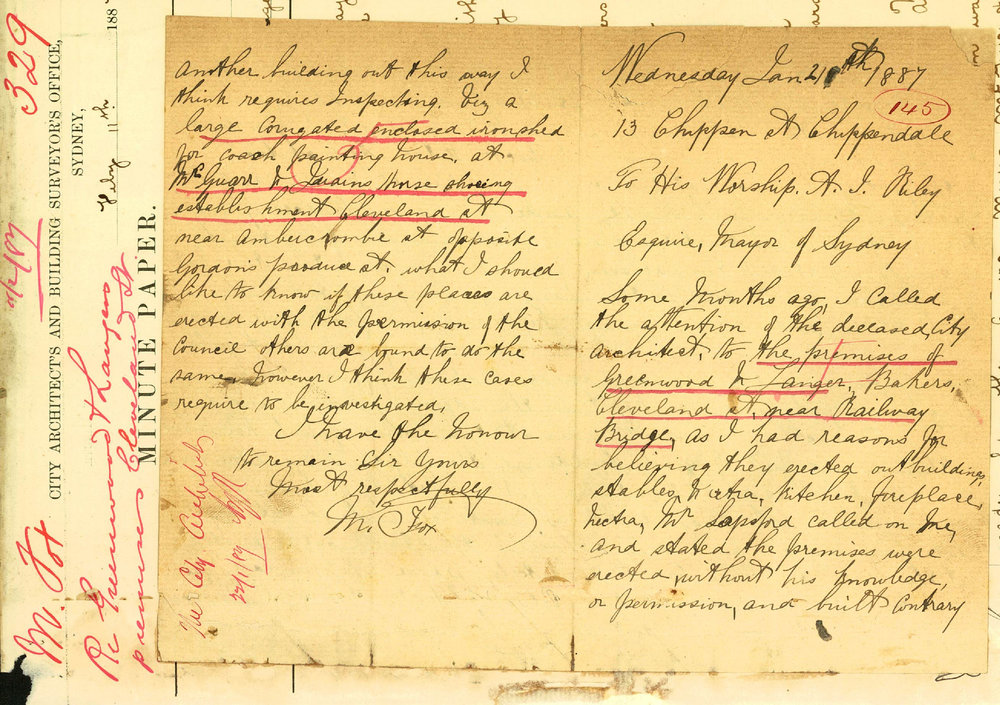 Wednesday Jan 20th/1887
145
13 Chippen st Chippendale
To His Worship. A. J. Riley
Esquire, Mayor of Sydney
Some months ago, I called
the attention of the deceased, City
architect, to the premises of
Greenwood & Langer, Bakers,
Cleveland st near Railway
Bridge, as I had reasons for
believing they erected out buildings,
stables, & ctra, Kitchen, fireplace,
& ectra, Mr Sapsford called on me,
and stated the premises were
erected, without his knowledge,
or permission, and built contrary
Another building out this way I
think requires Inspecting. Viz a
large Corugated enclosed ironshed
for coach painting house. at
horse shoeing
establishment Cleveland st
near Ambercrombie st opposite
Gordon's produce st. what I should
like to know if these places are
erected with the permission of the
Council others are bound to do the
same, however I think these cases
require to be investigated,
I have the honour
to remain Sir Yours
Most respectfully
M. Fox
The City Architect
22/1/87
329
CITY ARCHITECTS AND BUILDING SURVEYOR'S OFFICE,
SYDNEY,
Feby 11th 188
MINUTE PAPER.
M. Fox
Re Greenwood & Langers
premises Cleveland St